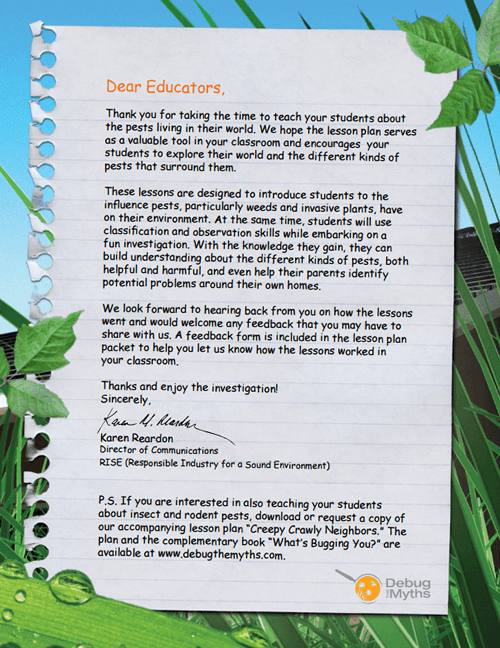 Dear Educators,
Thank you for taking the time to teach your students about
the pests living in their world. We hope the lesson plan serves
as a valuable tool in your classroom and encourages your
students to explore their world and the different kinds of
pests that surround them.
These lessons are designed to introduce students to the
influence pests, particularly weeds and invasive plants, have
on their environment. At the same time, students will use
classification and observation skills while embarking on a
fun investigation. With the knowledge they gain, they can
build understanding about the different kinds of pests, both
helpful and harmful, and even help their parents identify
potential problems around their own homes.
We look forward to hearing back from you on how the lessons
went and would welcome any feedback that you may have to
share with us. A feedback form is included in the lesson plan
packet to help you let us know how the lessons worked in
your classroom.
Thanks and enjoy the investigation!
Sincerely,
Karen M. Reardon
Karen Reardon
Director of Communications
RISE (Responsible Industry for a Sound Environment)
P.S. If you are interested in also teaching your students
about insect and rodent pests, download or request a copy of
our accompanying lesson plan “Creepy Crawly Neighbors.” The
plan and the complementary book “What’s Bugging You?” are
available at www.debugthemyths.com.
Debug
THE Myths